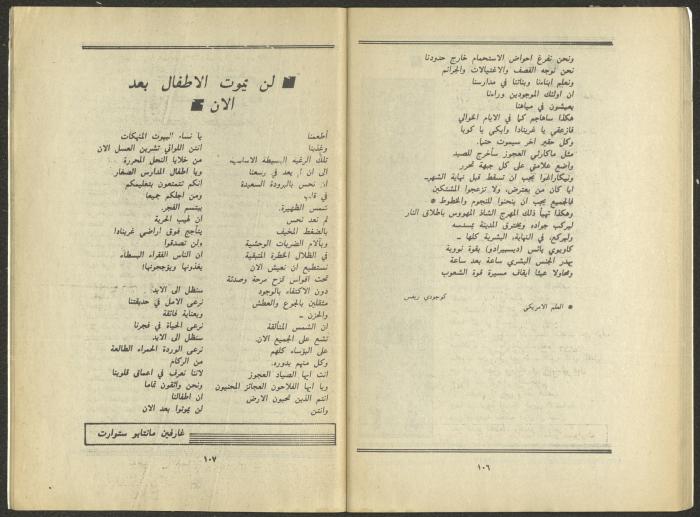 ونحن نفرغ احواض الاستحمام خارج حدودنا
نحن نوجه القصف والاغتيالات والجرائم
ونعلم ابناءنا وبناتنا في مدارسنا
ان اولئك الموجودين وراءنا
يعيشون في مياهنا
هكذا ساهاجم كما في الايام الخوالي
فازعقي يا غرينادا وابكي يا كوبا
وكل حقير آخر سيموت حتماً.
مثل ماكارثي العجوز سأخرج للصيد
واضع علامتي على كل جبهة تحرر
ونيكاراغوا يجب ان تسقط قبل نهاية الشهر.
ايا كان من يعترض، ولا تزعجوا المشككين
فالجميع يجب ان ينحنوا للنجوم والخطوط *
وهكذا تهيأ ذلك المهرج الشاذ المهووس باطلاق النار
ليركب جواده ويخترق المدينة بمسدسه
وليركع، في النهاية، البشرية كلها ـ
كاوبوي بائس (ديسبيرادو) بقوة نووية
يهدر الجنس البشري ساعة بعد ساعة
ومحاولا عبثا ايقاف مسيرة قوة الشعوب
كوجودي ريفس
* العلم الامريكي
١٠٦
لن يموت الاطفال بعد
الان
أطعمنا
وغذينا
تلك الرغبة البسيطة الاساسية
الى ان
نحس بالبرودة السعيدة
في قلب
شمس الظهيرة.
لم نعد نحس
بالضغط المخيف
وبآلام الضربات الوحشية
في الظلال الخطرة المتبقية
نستطيع ان نعيش الان
تحت اقواس قزح مرحة وصدئة
دون الاكتفاء بالوجود
مثقلين بالجوع والعطش
والحزن ـ
ان الشمس المتألقة
تشع على الجميع الان.
على البؤساء كلهم
وكل منهم بدوره.
انت ايها الصياد العجوز
ويا ايها الفلاحون العجائز المحنيون
انتم الذين تحبون الارض
وانتن
يا نساء البيوت المنهكات
انتن اللواتي تشربن العسل الان
من خلايا النحل المحررة
ويا اطفال المدارس الصغار
انكم تتمتعون بتعليمكم
ومن اجلكم جميعا
يبتسم الفجر.
ان لهيب الحرية
يتأجج فوق اراضي غرينادا
ولن تصدقوا
ان الناس الفقراء البسطاء
يغذونها ويؤججونها!
سنظل الى الابد
نرعى الامل في حديقتنا
وبعناية فائقة
نرعى الحياة في فجرنا
سنظل الى الابد
نرعى الوردة الحمراء الطالعة
من الركام
لاننا نعرف في اعماق قلوبنا
ونحن واثقون تماما
ان اطفالنا
لن يموتوا بعد الان
غارفين مانتابو ستوارت
١٠٧